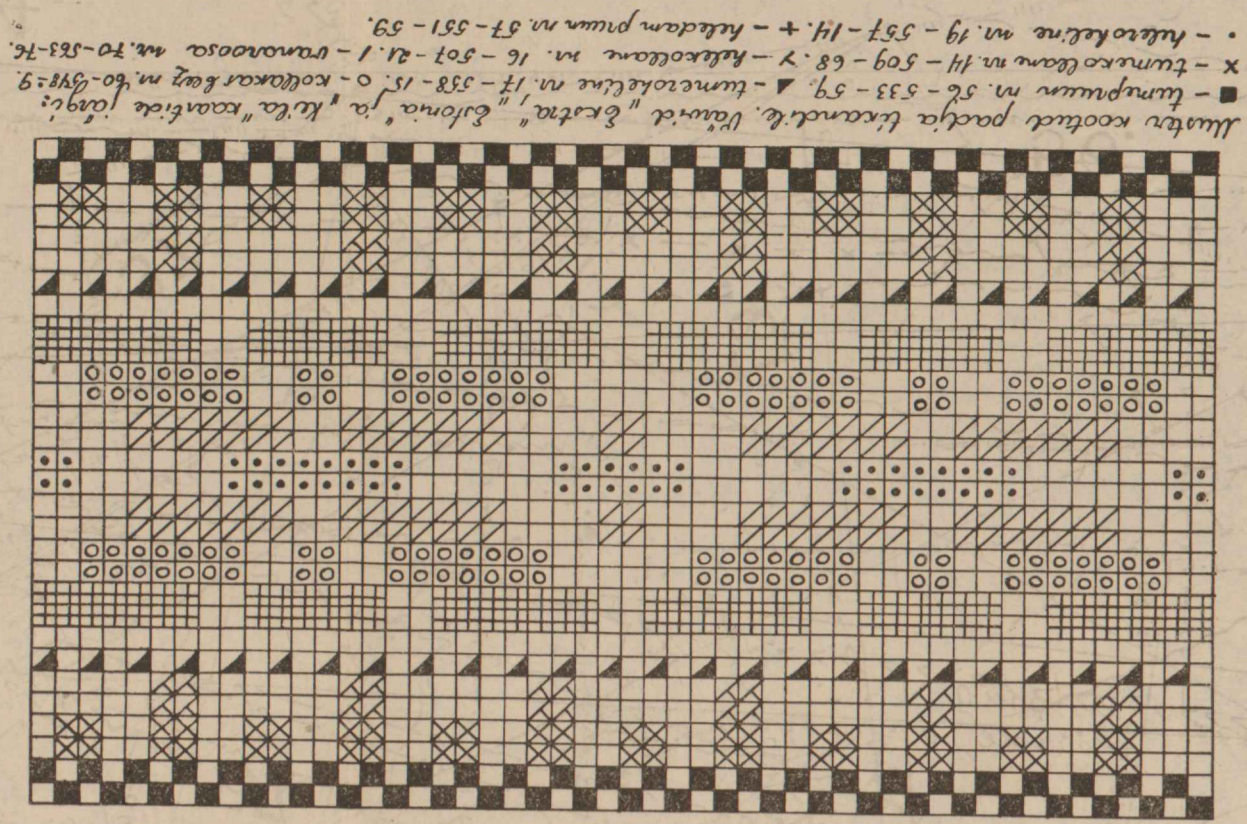 Muster kootud padja tikandile. Värvid „Ekstra", „Estonia" ja „Keila" kaartide järgi:
■ – tumepruun nr. 56-533-59. ◢ – tumeroheline nr. 17-558-15. o – kollakas beež nr. 60-548-9.
x – tumekollane nr. 14-509-68. Y – helekollane nr. 16-507-21. / – vanaroosa nr. 70-563-76.
• – heleroheline nr. 19-557-14. + – heledam pruun nr. 57-551-59.